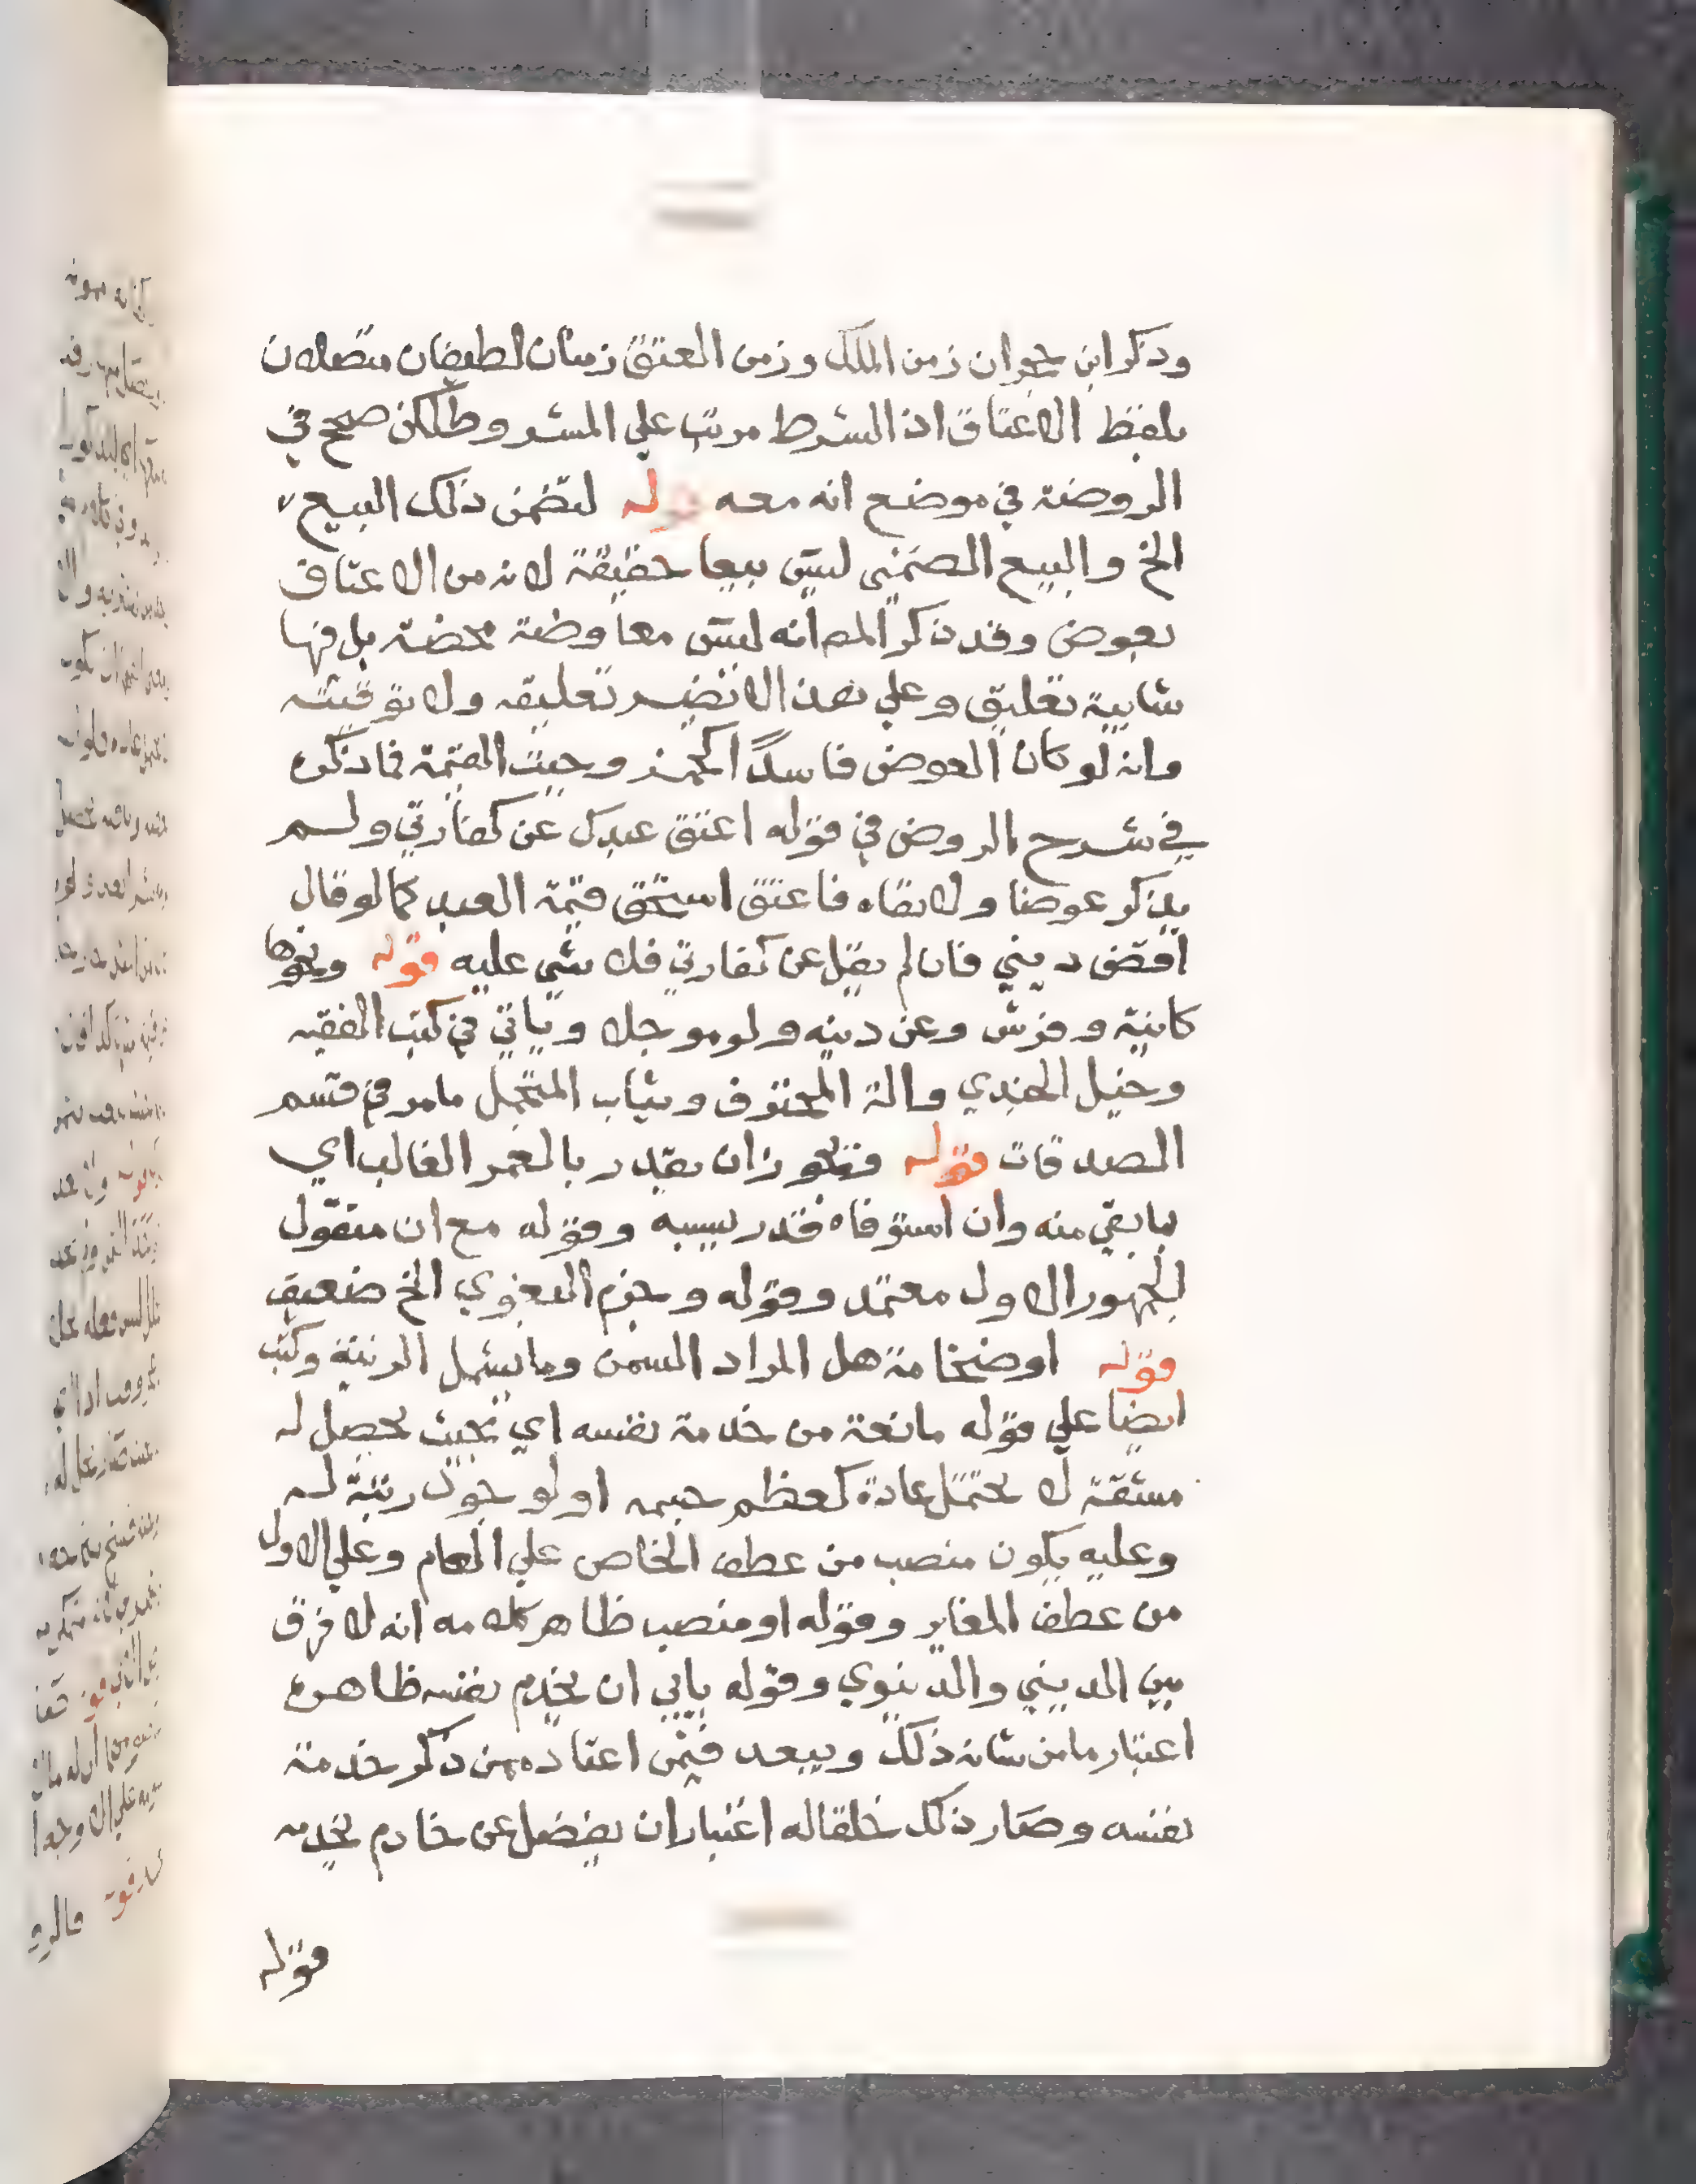 وذكر ابن حجر ان زمن الملك وزمن العتق زمنان لطيفان متصلان
بلفظ الاعتاق اذ الشرط مرتب علي المشروط لكن صحح في
الروضة في موضع انه معه قوله لتضمن ذلك البيع
الخ والبيع الضمني ليس بيعا حقيقة لانه من الاعتاق
بعوض وقد ذكر المص انه ليس معاوضة محضة بل فيها
شايبة تعليق وعلي هذا لا تضير تعليقه ولا توقيته
وانه لو كان العوض فاسدًا كخمر وجبت القيمة فما ذكره
في شرح الروض في قوله اعتق عبدك عن كفارتي ولم
يذكر عوضا ولا نفاه فاعتق استحق قيمة العبد كما لو قال
اقض ديني فان لم يقل عن كفارتي فلا شي عليه قوله ونحوها
كانية وفرش وعن دينه ولو موجلا وياتي في كتب الفقيه
وخيل الجندي والة المحترف وثياب المتجمل ما مر في قسم
الصدقات قوله فيجوز ان يقدر بالعمر الغالب اي
ما بقي منه وان استوفاه قدر بسببه وقوله مع ان منقول
الجمهور الاول معتمد وقوله وجزم البغوي الخ ضعيف
قوله او ضخامة هل المراد السمن وما يشمل الرتبة وكتب
ايضا علي قوله مانعة من خدمة نفسه اي بحيث يحصل له
مشقة لا يحتمل عادة كعظم جسمه او لو حول رتبة له
وعليه يكون منصب من عطف الخاص علي العام وعلي الاول
من عطف المغاير وقوله او منصب ظاهر كلامه انه لا فرق
بين الديني والدنيوي وقوله يابي ان يخدم نفسه ظاهره
اعتبار ما من شانه ذلك ويبعد فيمن اعتاده ممن ذكر خدمة
نفسه وصار ذلك خلقا له اعتبار ان يفضل عن خادم يخدمه
قوله